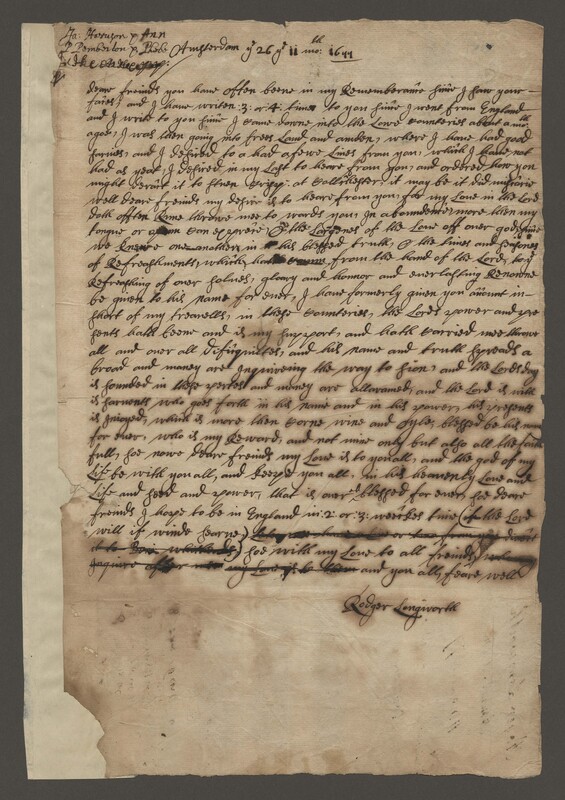 Ja: Harrison & Ann
P Pemberton & Phebe Amsterdam ye 26 ye 11th mo: 1677
dear freinds you have often beene in my Remembrance since I saw your
faces; and I have writen: 3: or 4: times to you since I went from England
and I write to you since I came downe into the Lowe Countries about a mth
agoe; I was then going into frees Land and amben, where I have had good
sarvies, and I desired to a had a fewe Lines from you; which I have not
had as yeat; I desired in my Last to heare from you; and ordered how you
might derect it to Steven Crisp: at Collchester; it may be it did miscarie
well deare freinds my desire is to heare from you, for my Love in the Lord
doth often Rune thrwoe mee to wards you; In aboundence, more then my
tongue or can expres; the of the Love off over god since
we Knewe one another in his blessed truth, & the times and seasons
of Refreashments, which hath from the hand of the Lord;
Refreashing of over holines, gloary and honnor and everlasting Renowne
be given to his name for ever, I have formerly given you acount in
short of my treavells, in these Countries, the Lords power and pre
sents hath beene and is my support, and hath Carried mee throwe
all and over all difiquites, and his name and truth spreads a
broad and maney are Inquireing the way to Sion; and the Lords day
is sounded in these partes and maney are allaramed; and the Lord is with
is sarvents who goes forth in his name and in his power, his presents
is Injoyed, which is more then Corne wine and Oyle; blessed be his name
for ever, who is my Reward, and not mine only but also all the faith
full, soe nowe deare freinds my Love is to you all, and the god of my
Life be with you all, and keepe you all, in his heavenly Love and
Life and seed and power, that is over blessed for ever, soe deare
freinds I hope to be in England in: 2: or: 3: weickes time (if the Lord
will if winde searve) soe with my Love to all freinds
Inquire after mee my Love is to them and you all, feare well
Rodger Longworth